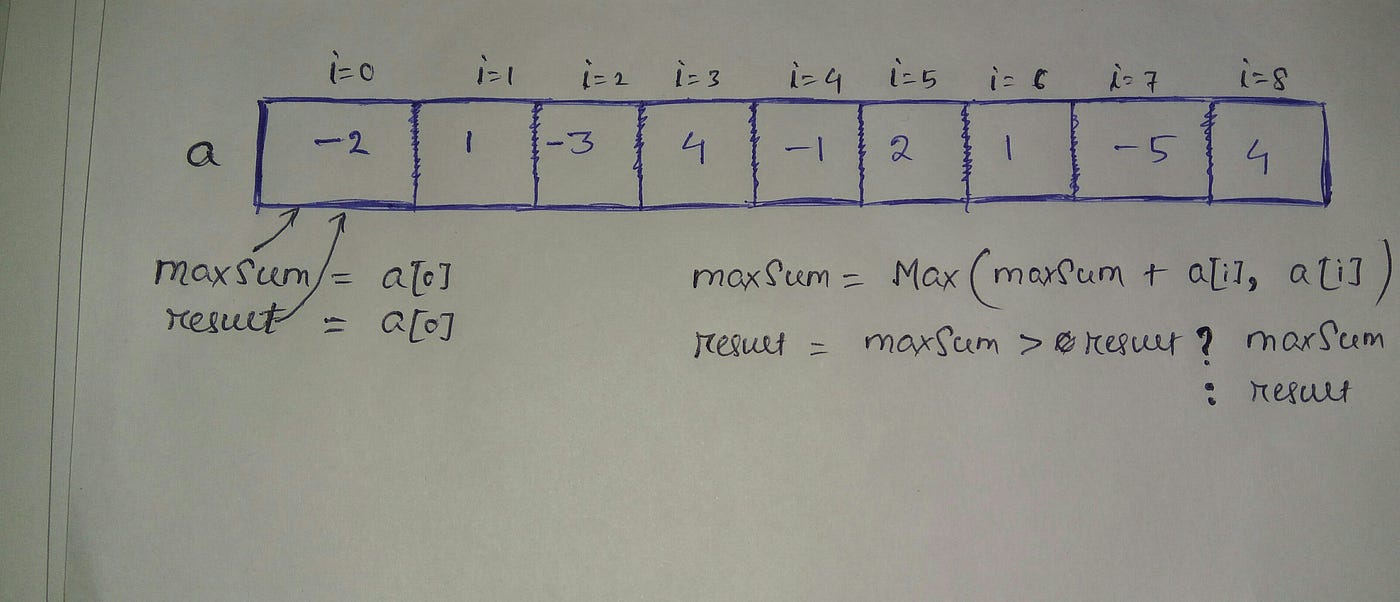 i=0 i=1 i=2 i=3 i=4 i=5 i=6 i=7 i=8
a -2 1 -3 4 -1 2 1 -5 4
maxSum = a[0]
result = a[0]
maxSum = Max(maxSum + a[i], a[i])
result = maxSum > result ? maxSum
: result